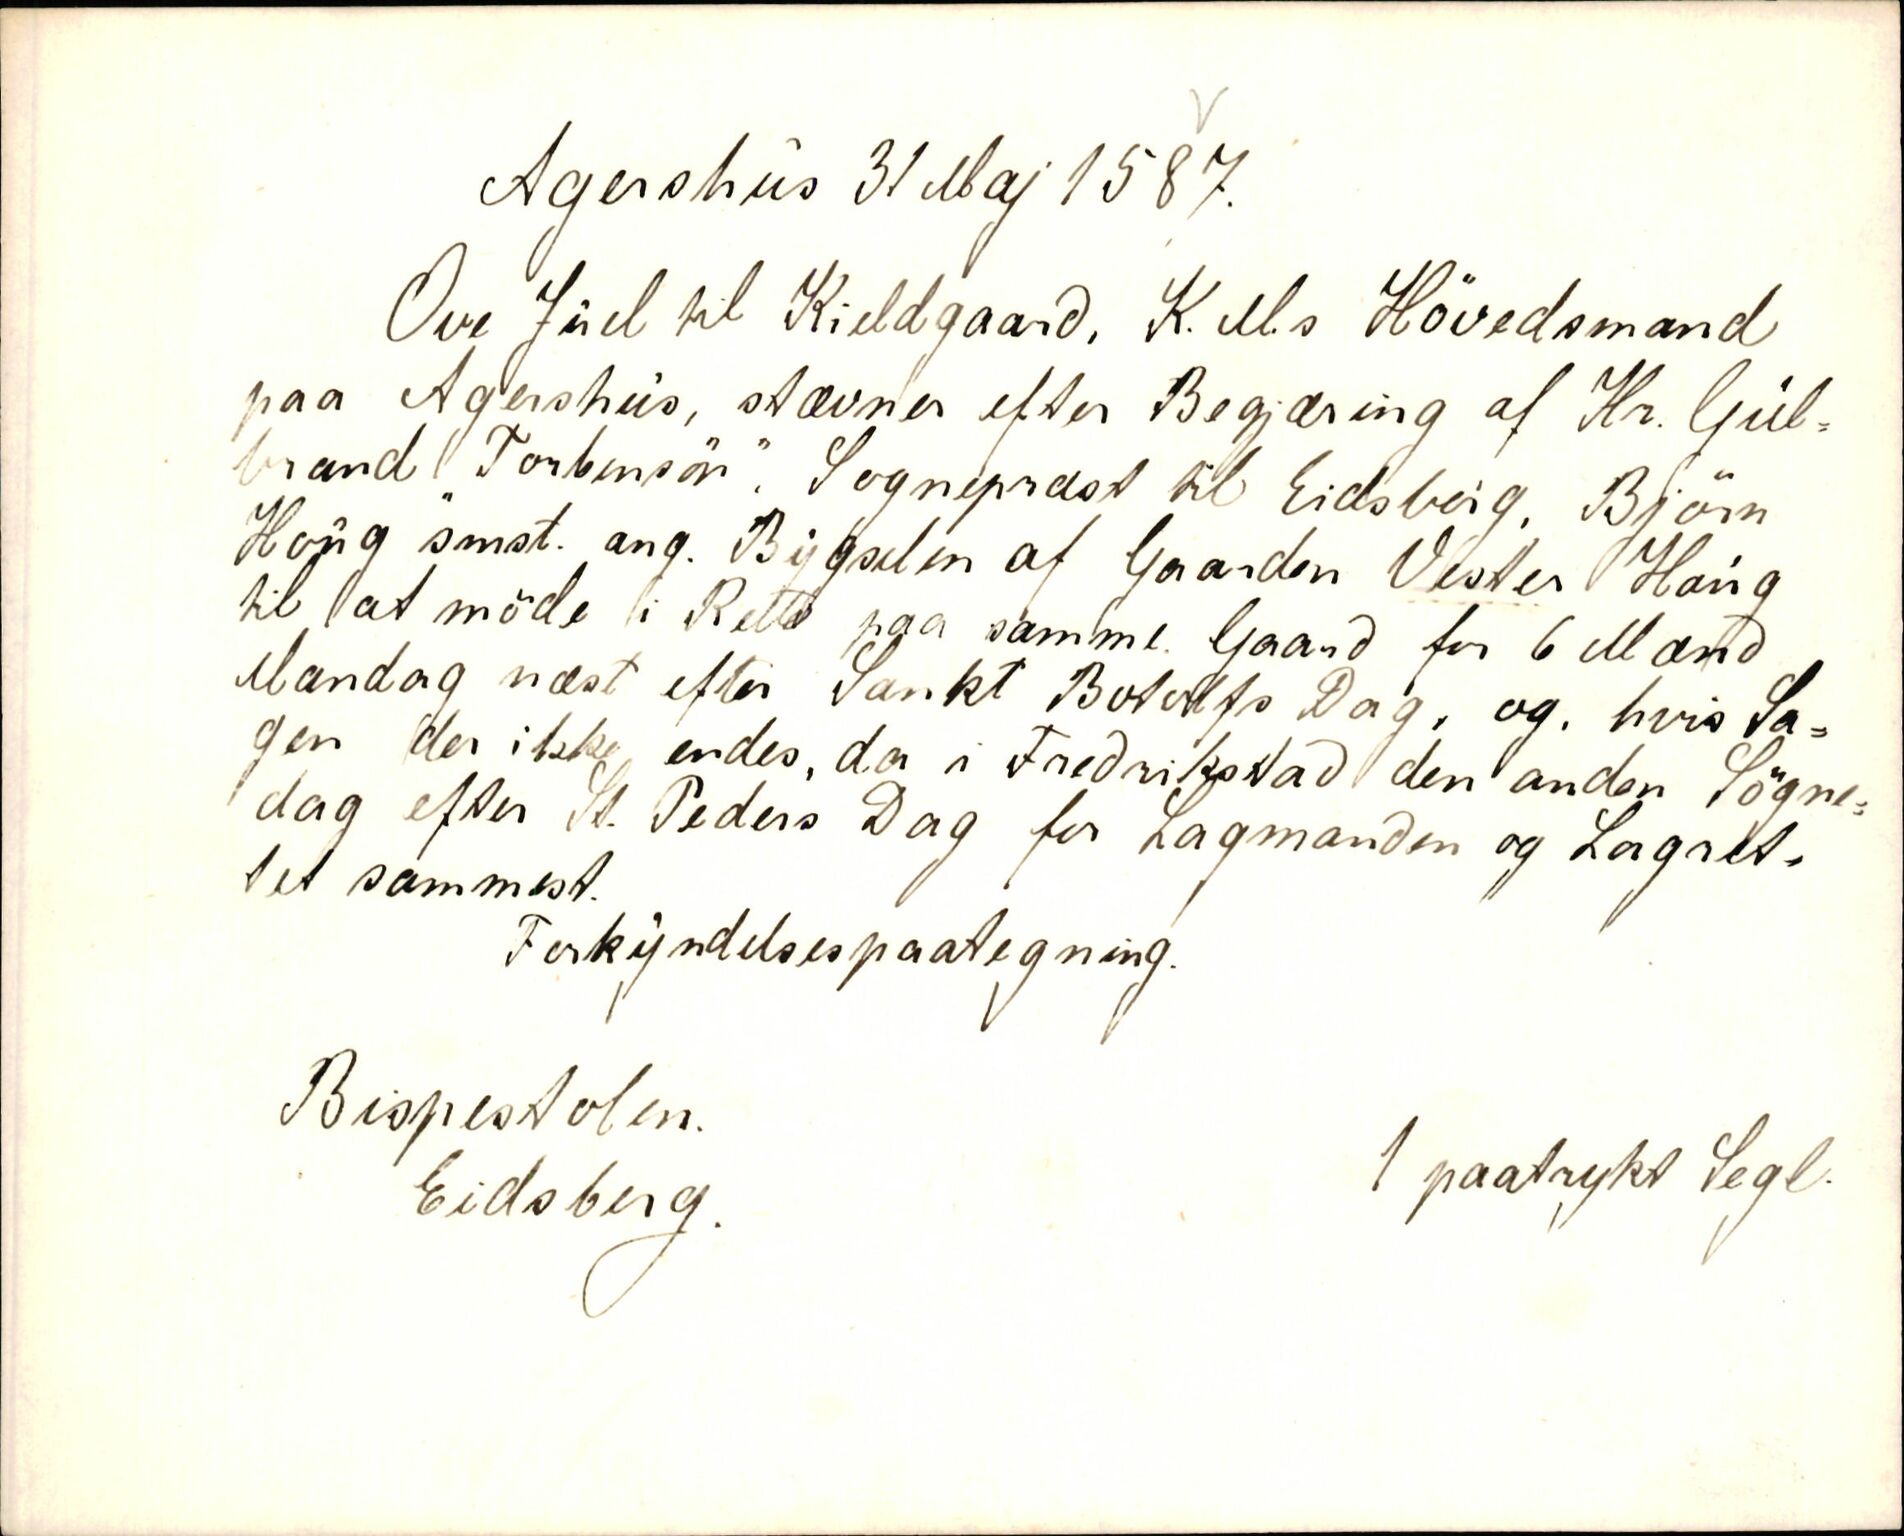 Agershus 31 Maj 1587.
Ove Juel til Kieldgaard, K. M.s Hövedsmand
paa Agershus, stævner efter Begjæring af Hr. Gul-
brand Torbensön, Sognepræst til Eidsberg, Björn
Houg smst. ang. Bygselen af Gaarden Vester Houg
til at möde i Rette paa samme Gaard for 6 Mænd
Mandag næst efter Sankt Botolfs Dag, og, hvis Sa-
gen der ikke endes, da i Fredrikstad den anden Sögne-
dag efter St. Peders Dag for Lagmanden og Lagret-
tet sammest.
Forkyndelsespaategning.
Bispestolen.
Eidsberg.
1 paatrykt Segl.